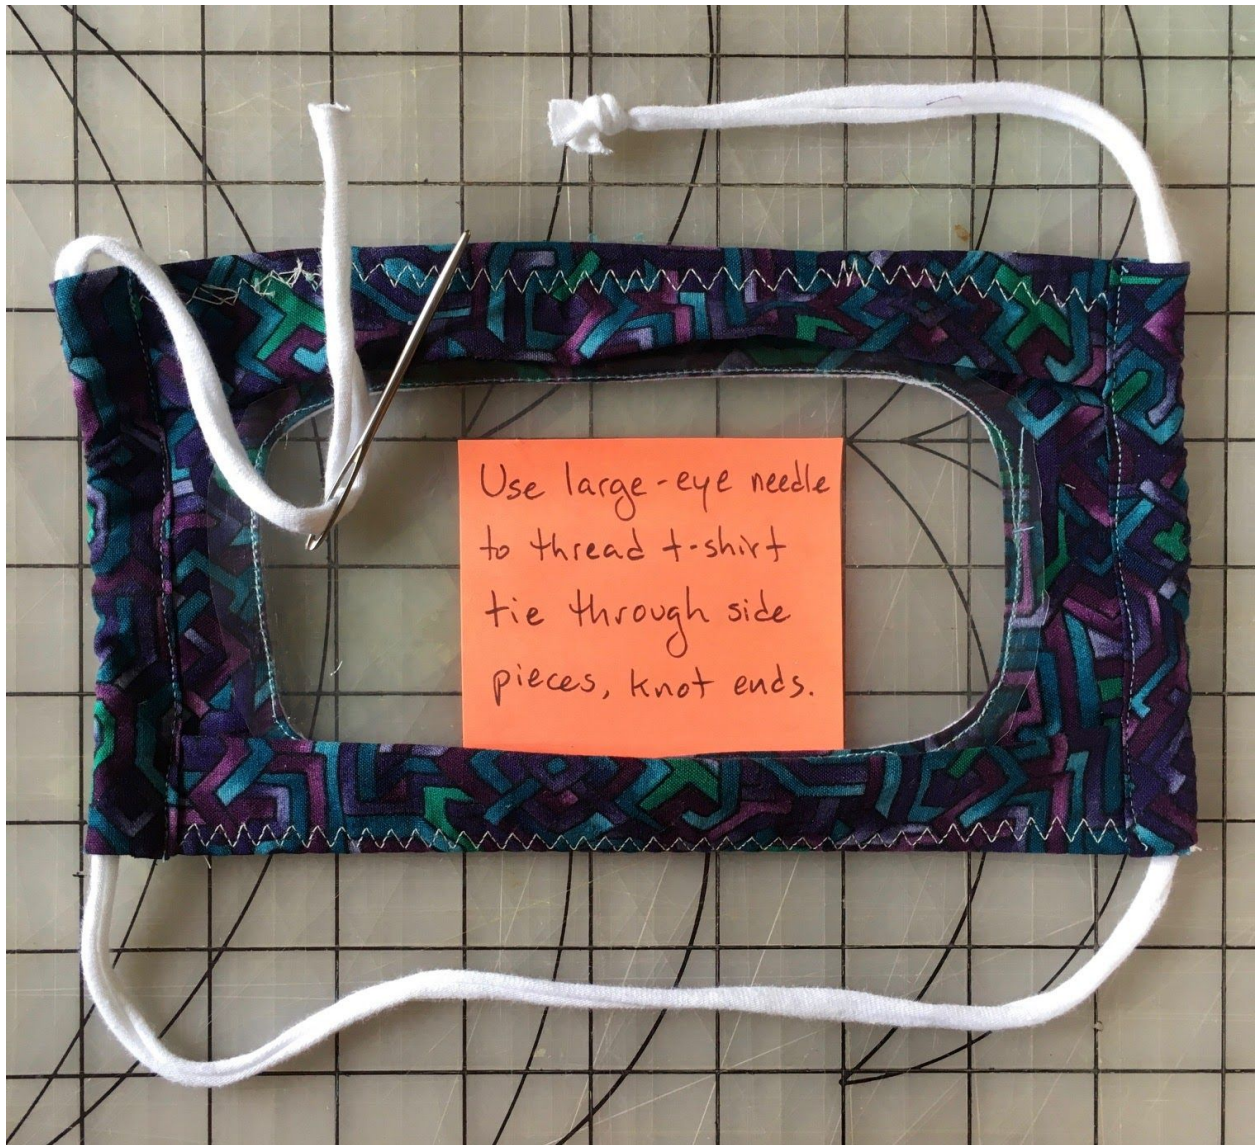 Use large-eye needle
to thread t-shirt
tie through side
pieces, knot ends.